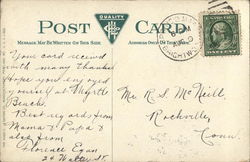 QUALITY
POST CARD
MESSAGE MAY BE WRITTEN ON THIS SIDE
ADDRESS ONLY ON THIS SIDE
Your card received
with many thanks
Hope you enjoyed
yourself at Myrtle
Beach.
Best regards from
Mama & Papa &
also from
Florence Egan
24 Water St.
Mr. R. S. McNeill
Rockville,
Conn.